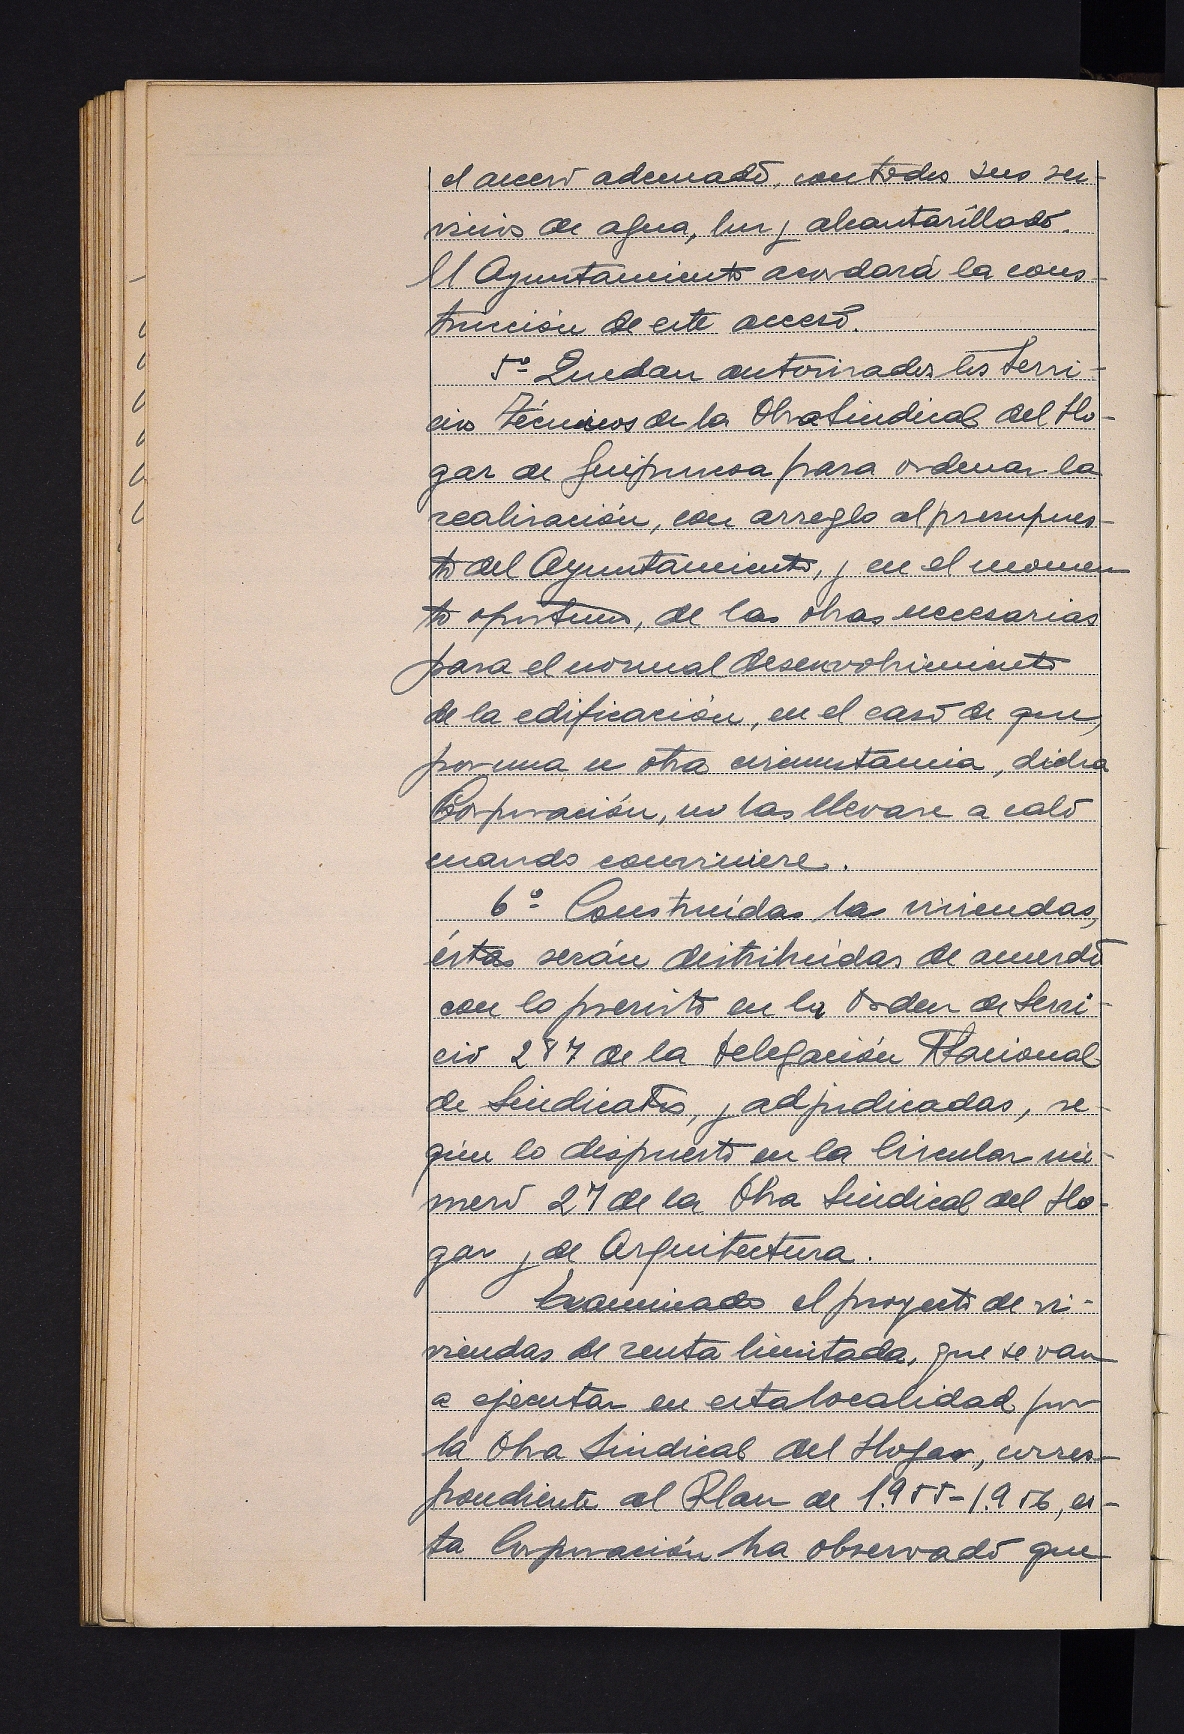 el acceso adecuado, con todos sus ser-
vicios de agua, luz y alcantarillado.
El Ayuntamiento acordará la cons-
trucción de este acceso.
5º Quedan autorizados los Servi-
cios Técnicos de la Obra Sindical del Ho-
gar de Guipuzcoa para ordenar la
realización, con arreglo al presupues-
to del Ayuntamiento, y en el momen
to oportuno, de las obras necesarias
para el normal desenvolvimiento
de la edificación, en el caso de que,
por una u otra circunstancia, dicha
Corporación, no las llevase a cabo
cuando conviniere.
6º Construídas las viviendas,
éstas serán distribuídas de acuerdo
con lo previsto en la Orden de Servi-
cio 287 de la Delegación Nacional
de Sindicatos, y adjudicadas, se-
gún lo dispuesto en la Circular nú-
mero 27 de la Obra Sindical del Ho-
gar y de Arquitectura.
Examinado el proyecto de vi-
viendas de renta limitada, que se van
a ejecutar en esta localidad por
la Obra Sindical del Hogar, corres-
pondiente al Plan de 1.955-1.956, es-
ta Corporación ha observado que